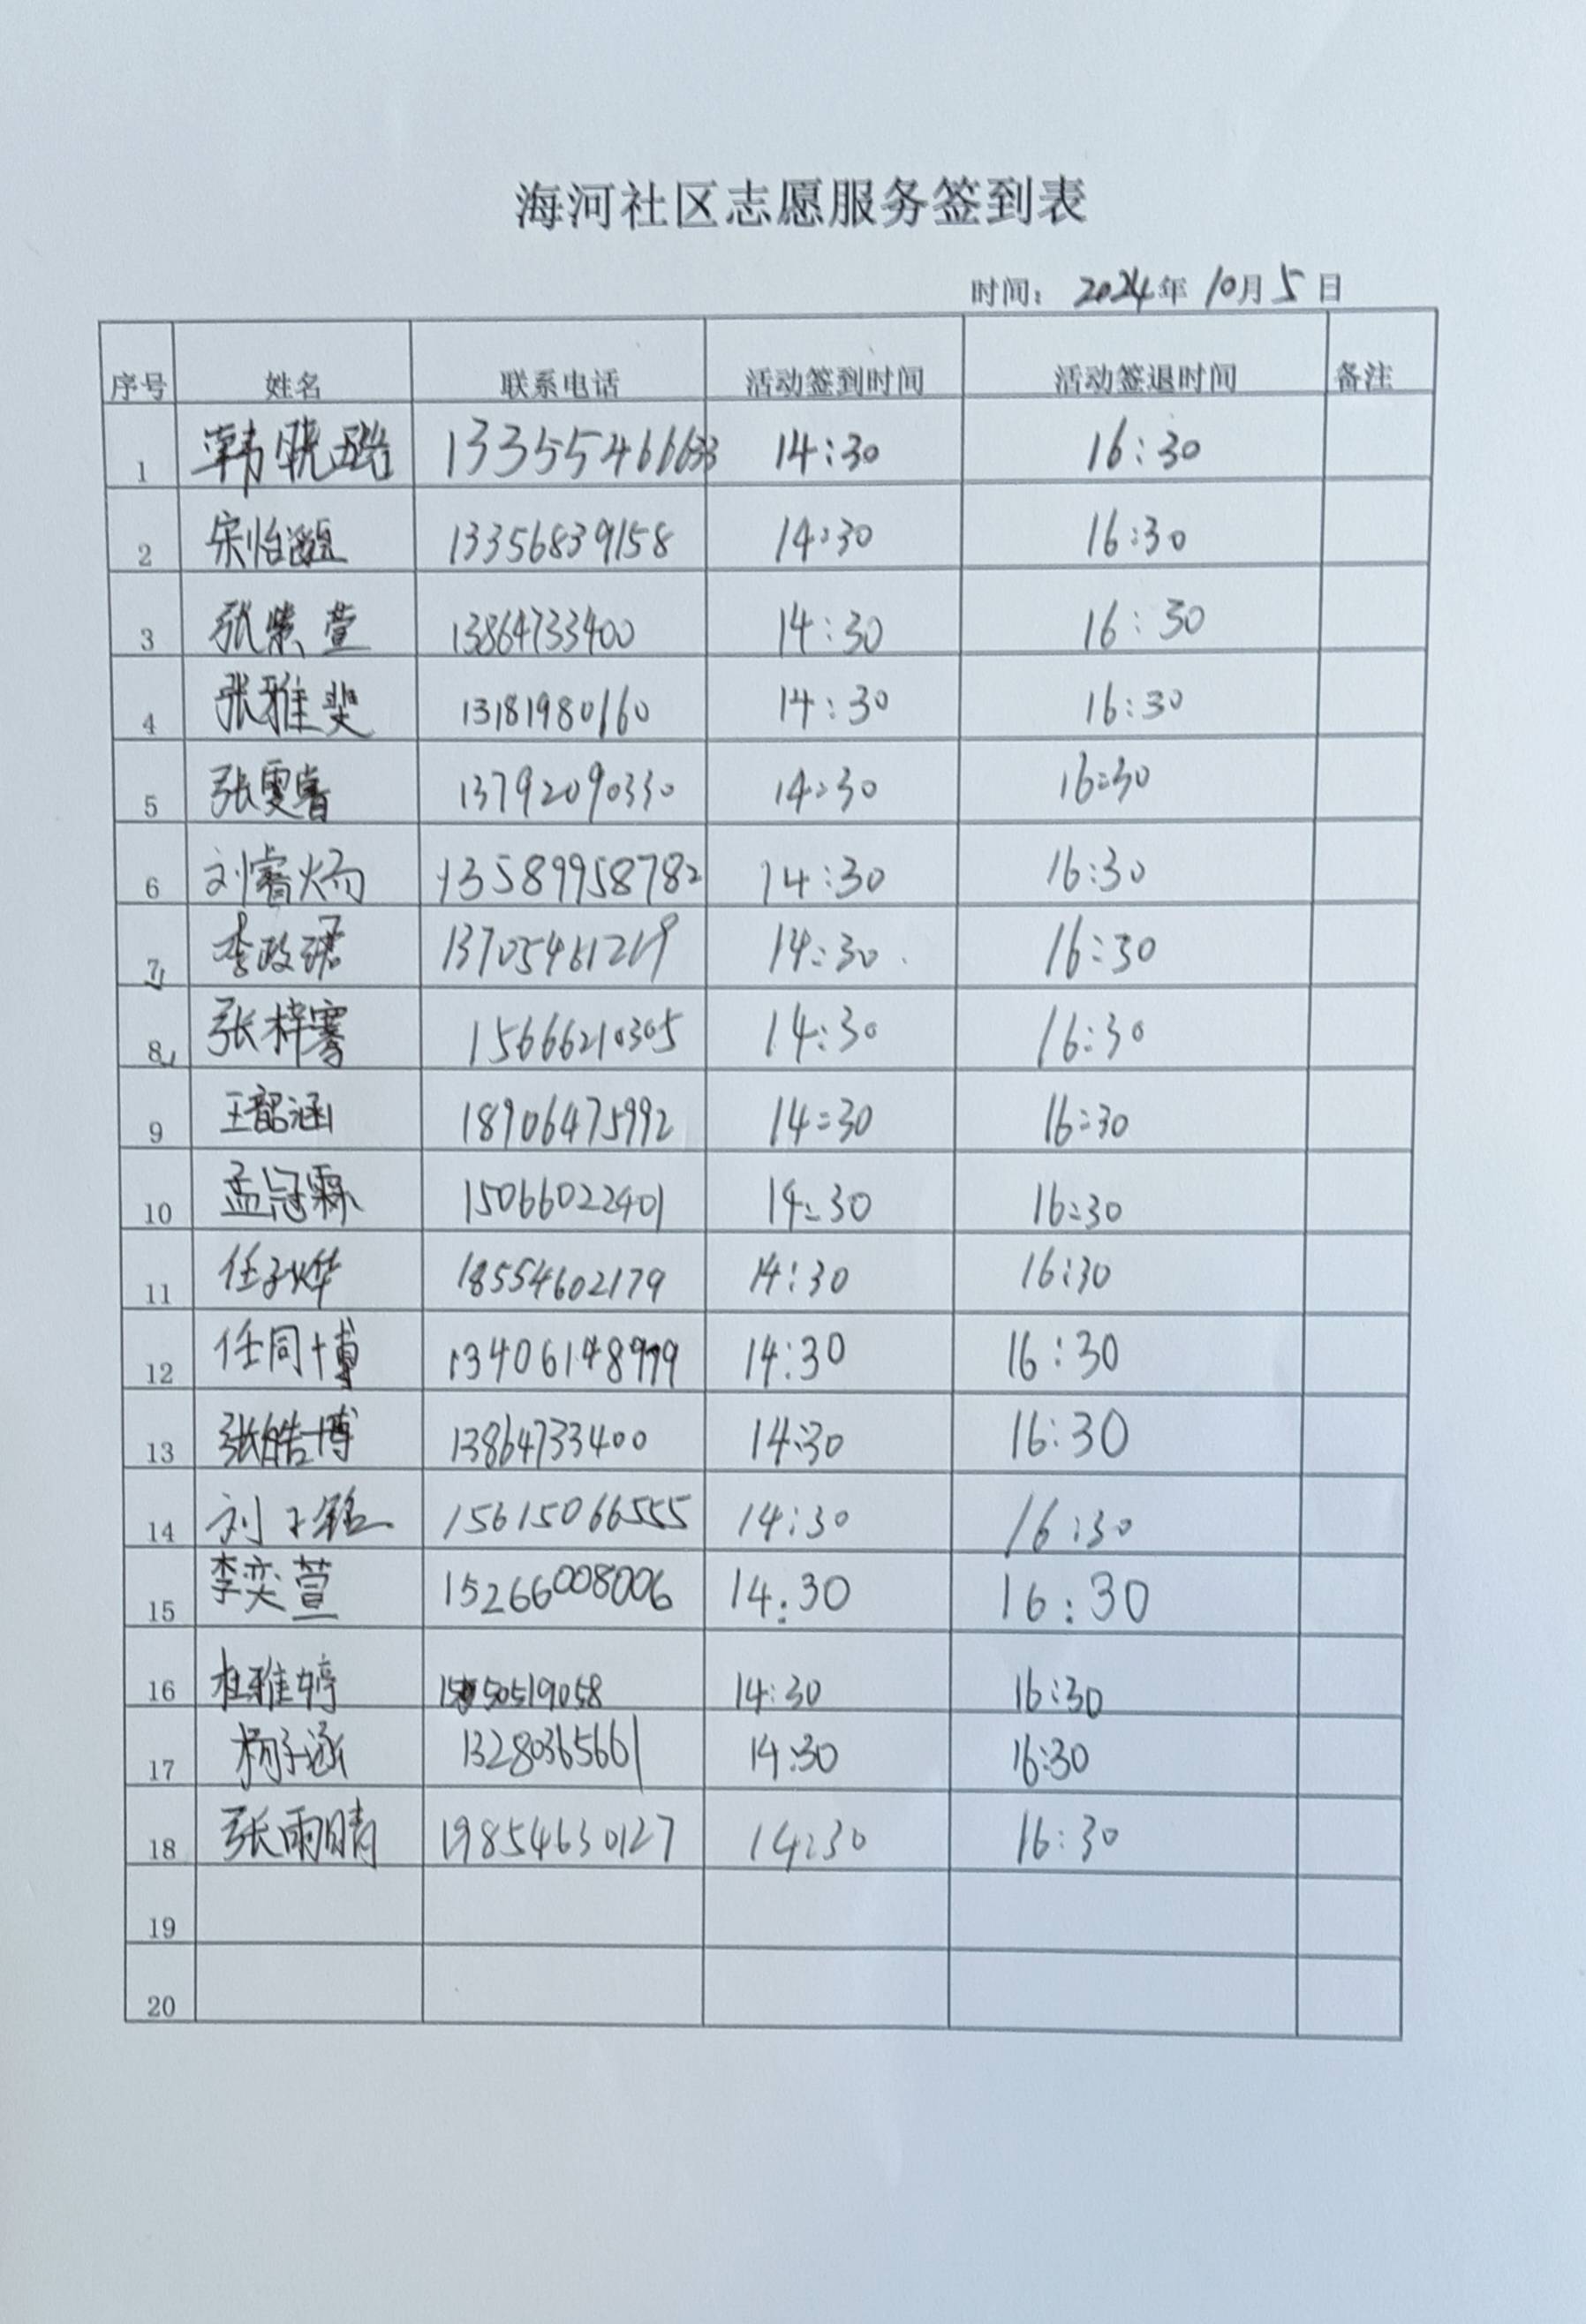 海河社区志愿服务签到表
时间： 2024年 10月 5日
序号 姓名 联系电话 活动签到时间 活动签退时间 备注
1 韩晓璐 13355466633 14:30 16:30
2 宋怡 13356839158 14:30 16:30
3 张紫萱 13864733400 14:30 16:30
4 张雅斐 13181980160 14:30 16:30
5 张雯睿 13792090330 14:30 16:30
6 刘睿炀 13589958782 14:30 16:30
7 李政珺 13705461219 14:30 16:30
8 张梓骞 15666210305 14:30 16:30
9 王韶涵 18906475992 14:30 16:30
10 孟冠霖 15066022401 14:30 16:30
11 任子烨 18554602179 14:30 16:30
12 任同博 14:30 16:30
13 张皓博 13864733400 14:30 16:30
14 刘子铭 15615066555 14:30 16:30
15 李奕萱 15266008006 14:30 16:30
16 杜雅婷 14:30 16:30
17 杨子涵 13280365661 14:30 16:30
18 张雨晴 19854630127 14:30 16:30
19
20